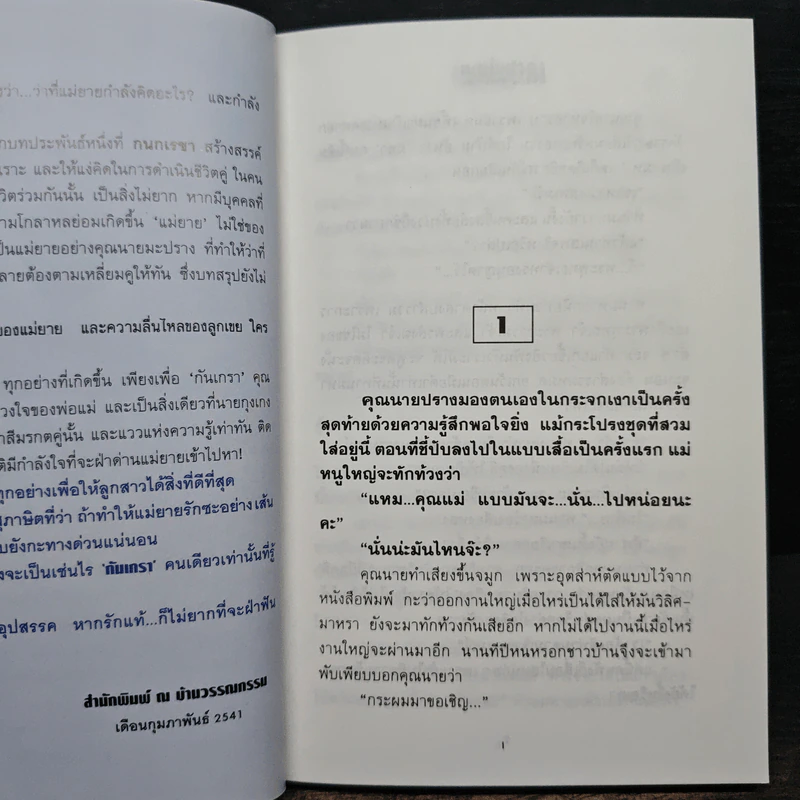 ว่า...ว่าที่แม่ยายกำลังคิดอะไร? และกำลัง
บทประพันธ์หนึ่งที่ กนกเรขา สร้างสรรค์
เราะ และให้แง่คิดในการดำเนินชีวิตคู่ ในคน
วิตร่วมกันนั้น เป็นสิ่งไม่ยาก หากมีบุคคลที่
ามโกลาหลย่อมเกิดขึ้น 'แม่ยาย' ไม่ใช่ของ
ป็นแม่ยายอย่างคุณนายมะปราง ที่ทำให้ว่าที่
ลายต้องตามเหลี่ยมคูให้ทัน ซึ่งบทสรุปยังไม่
ของแม่ยาย และความลื่นไหลของลูกเขย ใคร
ทุกอย่างที่เกิดขึ้น เพียงเพื่อ 'กันเกรา' คุณ
วงใจของพ่อแม่ และเป็นสิ่งเดียวที่นายกุงเกง
าสีมรกตคู่นั้น และแววแห่งความรู้เท่าทัน ติด
ติมีกำลังใจที่จะฝ่าด่านแม่ยายเข้าไปหา!
ทุกอย่างเพื่อให้ลูกสาวได้สิ่งที่ดีที่สุด
สุภาษิตที่ว่า ถ้าทำให้แม่ยายรักซะอย่าง เส้น
บยังกะทางด่วนแน่นอน
งจะเป็นเช่นไร 'กันเกรา' คนเดียวเท่านั้นที่รู้
อุปสรรค หากรักแท้...ก็ไม่ยากที่จะฝ่าฟัน
สำนักพิมพ์ ณ บ้านวรรณกรรม
เดือนกุมภาพันธ์ 2541
1
คุณนายปรางมองตนเองในกระจกเงาเป็นครั้ง
สุดท้ายด้วยความรู้สึกพอใจยิ่ง แม้กระโปรงชุดที่สวม
ใส่อยู่นี้ ตอนที่ชี้ปับลงไปในแบบเสื้อเป็นครั้งแรก แม่
หนูใหญ่จะทักท้วงว่า
"แหม...คุณแม่ แบบมันจะ...นั่น...ไปหน่อยนะ
คะ"
"นั่นน่ะมันไหนจ๊ะ?"
คุณนายทำเสียงขึ้นจมูก เพราะอุตส่าห์ตัดแบบไว้จาก
หนังสือพิมพ์ กะว่าออกงานใหญ่เมื่อไหร่เป็นได้ใส่ให้มันวิลิศ-
มาหรา ยังจะมาทักท้วงกันเสียอีก หากไม่ได้ไปงานนี้เมื่อไหร่
งานใหญ่จะผ่านมาอีก นานทีปีหนหรอกชาวบ้านจึงจะเข้ามา
พับเพียบบอกคุณนายว่า
"กระผมมาขอเชิญ..."
1